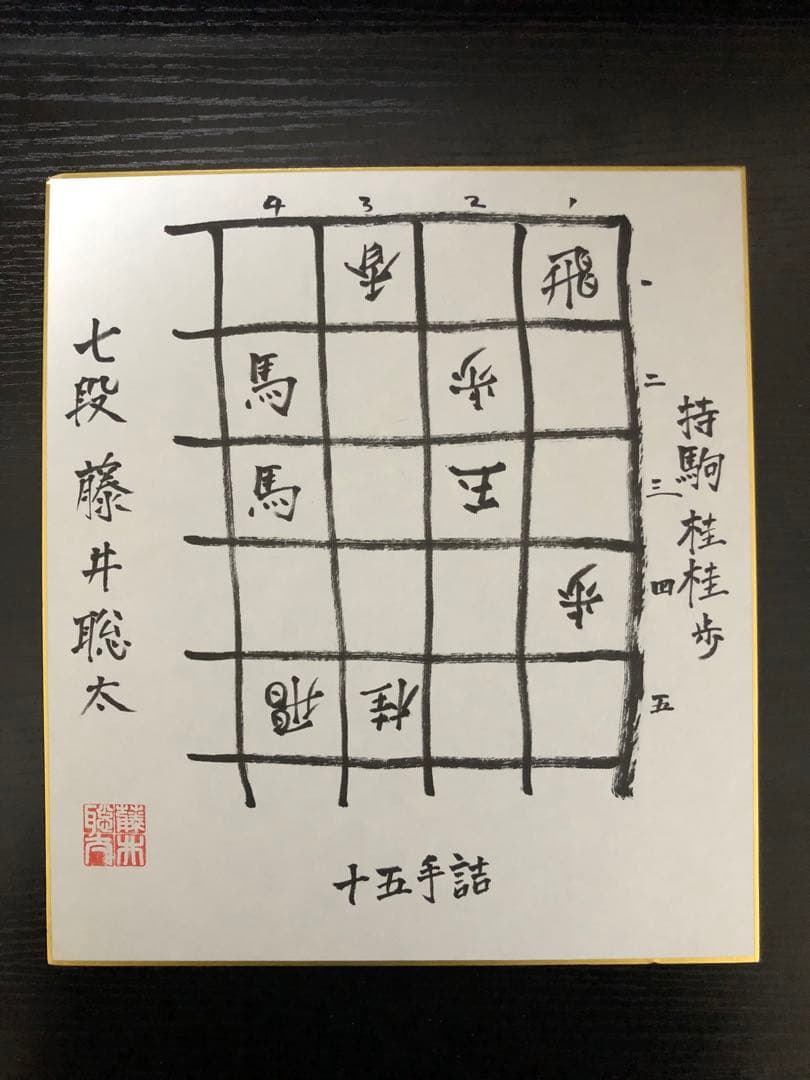 4 3 2 1
香 飛 一
馬 歩 二
馬 玉 三
歩 四
飛 桂 五
持駒 桂桂歩
七段 藤井聡太
十五手詰
藤井聡太